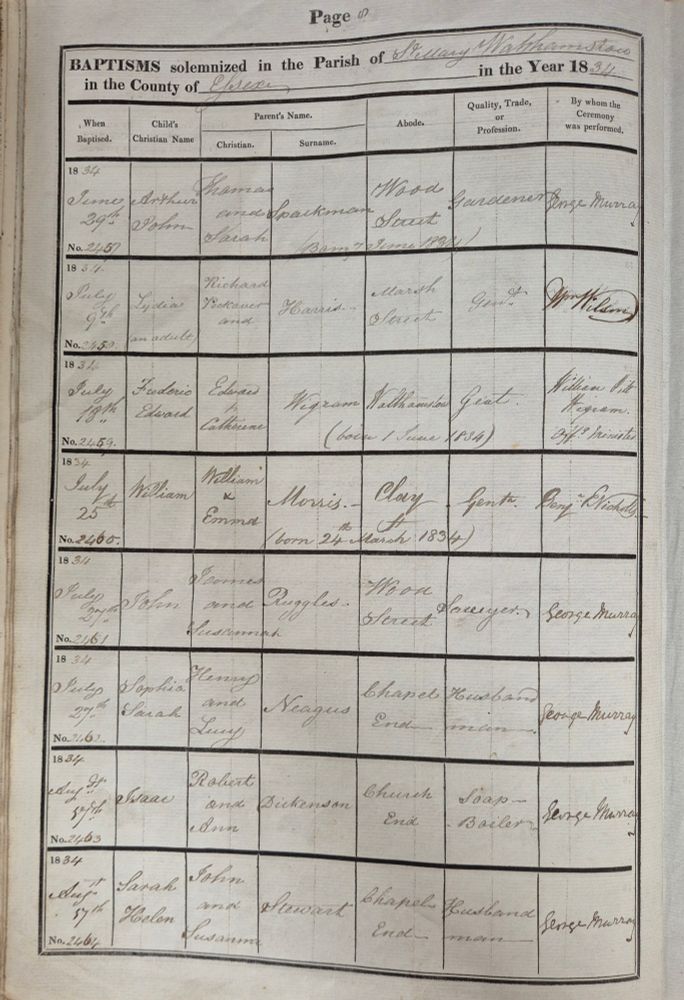 Page
BAPTISMS solemnized in the Parish of St. Mary Walthamstow
in the County of Essex in the Year 1834
When
Baptised.
Child's
Christian Name
Parent's Name.
Christian.
Surname.
Abode.
Quality, Trade,
or
Profession.
By whom the
Ceremony
was performed.
1834
June
29th
No. 2457
Arthur
John
Thomas
and
Sarah
Sparkman
Wood
Street
Gardener
George Murray
June 1834)
1834.
July
9th
No. 2458.
Lydia
(an adult)
Richard
and
Harris
Marsh
Street
Gent.
Wm Wilson
1834
July
18th
No. 2459.
Frederic
Edward
Edward
&
Catherine
Wigram
Walthamstow
Gent.
William Pitt
Wigram.
Offg. Minister
(born 1 June 1834)
1834
July
25th
No. 2460.
William
William
&
Emma
Morris.
Clay
St
Gentn.
Benjn. Nicholls
(born 24th March 1834)
1834
July
27th
No. 2461
John
James
and
Susannah
Ruggles.
Wood
Street
Sawyer
George Murray
1834
July
27th
No. 2462.
Sophia
Sarah
Henry
and
Lucy
Neagus
Chapel
End
Husband
man
George Murray
1834
Augst
No. 2463
Isaac
Robert
and
Ann
Dickenson
Church
End
Soap
Boiler
George Murray
1834
Augst
No. 2464
Sarah
Helen
John
and
Susanna
Stewart
Chapel
End
Husband
man
George Murray